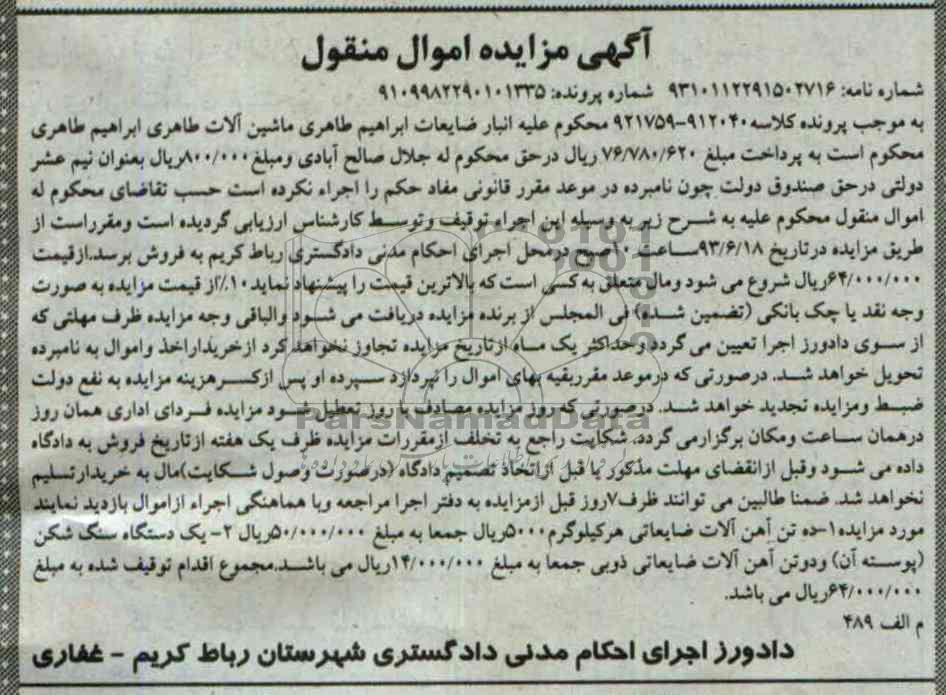 آگهی مزایده اموال منقول
شماره نامه: ۹۳۱۰۱۱۲۲۹۱۵۰۲۷۱۶ شماره پرونده: ۹۱۰۹۹۸۲۲۹۰۱۰۱۳۳۵
به موجب پرونده کلاسه ۹۱۲۰۴۰-۹۲۱۷۵۹ محکوم علیه انبار ضایعات ابراهیم طاهری ماشین آلات طاهری ابراهیم طاهری
محکوم است به پرداخت مبلغ ۷۶/۷۸۰/۶۲۰ ریال درحق محکوم له جلال صالح آبادی ومبلغ ۸۰۰/۰۰۰ریال بعنوان نیم عشر
دولتی درحق صندوق دولت چون نامبرده در موعد مقرر قانونی مفاد حکم را اجراء نکرده است حسب تقاضای محکوم له
اموال منقول محکوم علیه به شرح زیر به وسیله این اجراء توقیف وتوسط کارشناس ارزیابی گردیده است ومقرراست از
طریق مزایده درتاریخ ۹۳/۶/۱۸ساعت ۱۰صبح درمحل اجرای احکام مدنی دادگستری رباط کریم به فروش برسد.ازقیمت
۶۴/۰۰۰/۰۰۰ریال شروع می شود ومال متعلق به کسی است که بالاترین قیمت را پیشنهاد نماید ۱۰٪از قیمت مزایده به صورت
وجه نقد یا چک بانکی (تضمین شده) فی المجلس از برنده مزایده دریافت می شود والباقی وجه مزایده ظرف مهلتی که
از سوی دادورز اجرا تعیین می گردد وحداکثر یک ماه ازتاریخ مزایده تجاوز نخواهد کرد ازخریداراخذ واموال به نامبرده
تحویل خواهد شد. درصورتی که درموعد مقرربقیه بهای اموال را نپردازد سپرده او پس ازکسرهزینه مزایده به نفع دولت
ضبط ومزایده تجدید خواهد شد. درصورتی که روز مزایده مصادف با روز تعطیل شود مزایده فردای اداری همان روز
درهمان ساعت ومکان برگزارمی گردد. شکایت راجع به تخلف ازمقررات مزایده ظرف یک هفته ازتاریخ فروش به دادگاه
داده می شود وقبل ازانقضای مهلت مذکور یا قبل ازاتخاذ تصمیم دادگاه (درصورت وصول شکایت)مال به خریدارتسلیم
نخواهد شد. ضمنا طالبین می توانند ظرف۷روز قبل ازمزایده به دفتر اجرا مراجعه وبا هماهنگی اجراء ازاموال بازدید نمایند
مورد مزایده۱-ده تن آهن آلات ضایعاتی هرکیلوگرم۵۰۰۰ریال جمعا به مبلغ ۵۰/۰۰۰/۰۰۰ریال ۲- یک دستگاه سنگ شکن
(پوسته آن) ودوتن آهن آلات ضایعاتی ذوبی جمعا به مبلغ ۱۴/۰۰۰/۰۰۰ریال می باشد.مجموع اقدام توقیف شده به مبلغ
۶۴/۰۰۰/۰۰۰ریال می باشد.
م الف ۴۸۹
دادورز اجرای احکام مدنی دادگستری شهرستان رباط کریم - غفاری
ParsNamadData